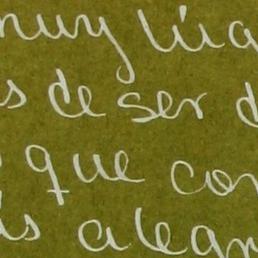 muy lia
s de ser d
que con
ás alegr